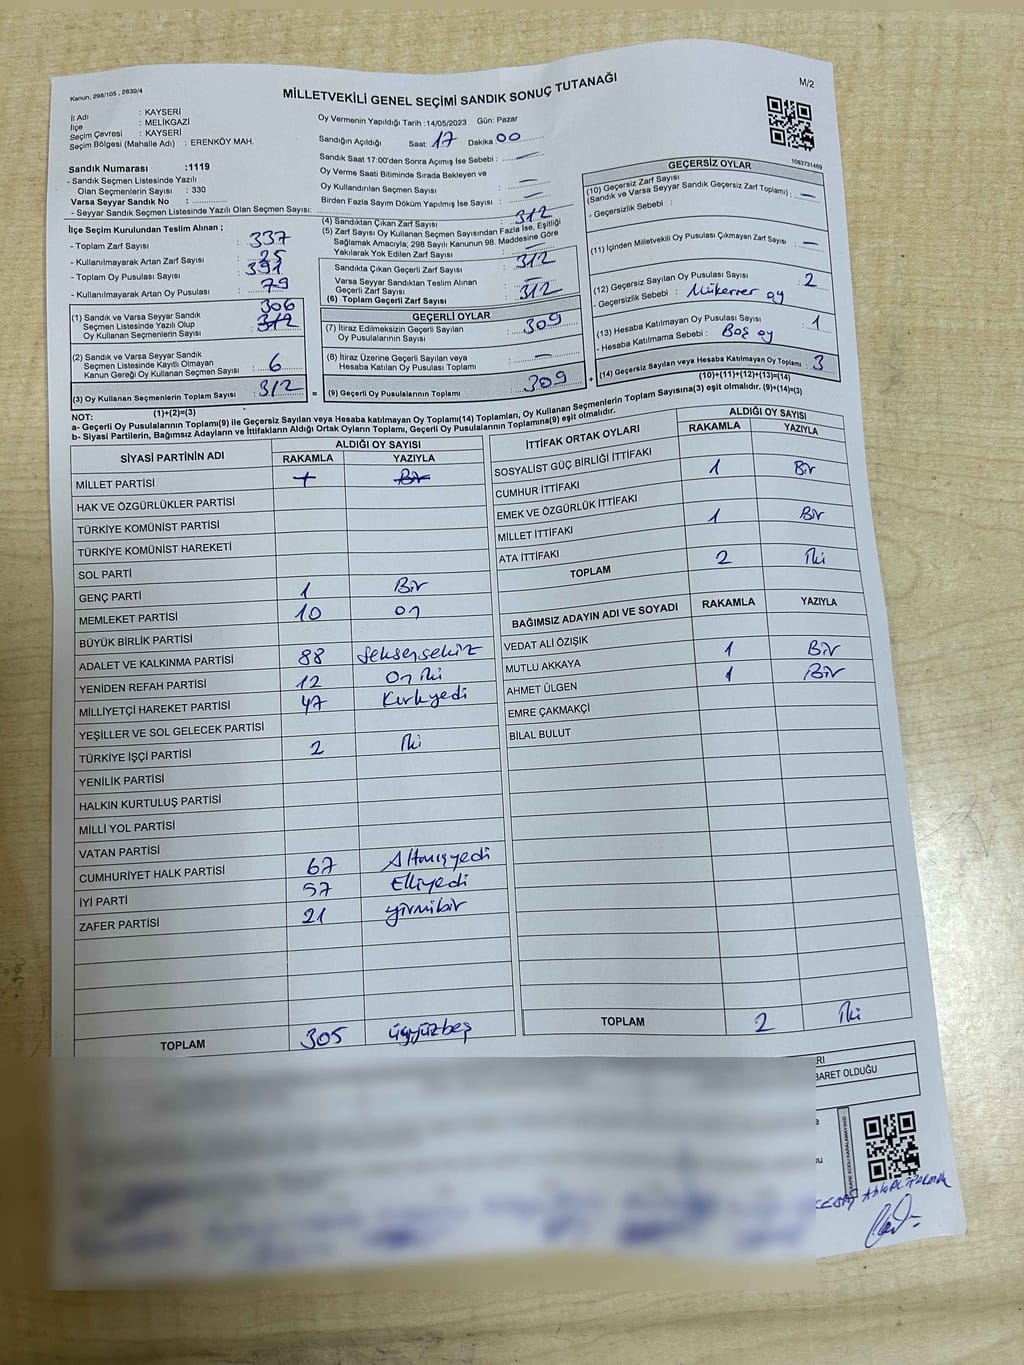 Kanun: 298/105 , 2839/4
MİLLETVEKİLİ GENEL SEÇİMİ SANDIK SONUÇ TUTANAĞI
M/2
İl Adı : KAYSERİ
İlçe : MELİKGAZİ
Seçim Çevresi : KAYSERİ
Seçim Bölgesi (Mahalle Adı) : ERENKÖY MAH.
Oy Vermenin Yapıldığı Tarih :14/05/2023 Gün: Pazar
Sandığın Açıldığı Saat: 17 Dakika 00
Sandık Saat 17:00'den Sonra Açımış İse Sebebi : —
Oy Verme Saati Bitiminde Sırada Bekleyen ve
Oy Kullandırılan Seçmen Sayısı : —
Birden Fazla Sayım Döküm Yapılmış İse Sayısı : —
Sandık Numarası :1119
- Sandık Seçmen Listesinde Yazılı
Olan Seçmenlerin Sayısı : 330
Varsa Seyyar Sandık No :
- Seyyar Sandık Seçmen Listesinde Yazılı Olan Seçmen Sayısı:
İlçe Seçim Kurulundan Teslim Alınan ;
- Toplam Zarf Sayısı : 337
- Kullanılmayarak Artan Zarf Sayısı : 25
- Toplam Oy Pusulası Sayısı : 391
- Kullanılmayarak Artan Oy Pusulası : 79
306
(1) Sandık ve Varsa Seyyar Sandık
Seçmen Listesinde Yazılı Olup
Oy Kullanan Seçmenlerin Sayısı : 312
(2) Sandık ve Varsa Seyyar Sandık
Seçmen Listesinde Kayıtlı Olmayan
Kanun Gereği Oy Kullanan Seçmen Sayısı : 6
(3) Oy Kullanan Seçmenlerin Toplam Sayısı : 312
(1)+(2)=(3)
(4) Sandıktan Çıkan Zarf Sayısı : 312
(5) Zarf Sayısı Oy Kullanan Seçmen Sayısından Fazla İse, Eşitliği
Sağlamak Amacıyla; 298 Sayılı Kanunun 98. Maddesine Göre
Yakılarak Yok Edilen Zarf Sayısı : —
Sandıkta Çıkan Geçerli Zarf Sayısı : 312
Varsa Seyyar Sandıktan Teslim Alınan
Geçerli Zarf Sayısı : —
(6) Toplam Geçerli Zarf Sayısı : 312
GEÇERLİ OYLAR
(7) İtiraz Edilmeksizin Geçerli Sayılan
Oy Pusulalarının Sayısı : 309
(8) İtiraz Üzerine Geçerli Sayılan veya
Hesaba Katılan Oy Pusulası Toplamı : —
= (9) Geçerli Oy Pusulalarının Toplamı : 309 +
1063731469
GEÇERSİZ OYLAR
(10) Geçersiz Zarf Sayısı
(Sandık ve Varsa Seyyar Sandık Geçersiz Zarf Toplamı) : —
- Geçersizlik Sebebi :
(11) İçinden Milletvekili Oy Pusulası Çıkmayan Zarf Sayısı : —
(12) Geçersiz Sayılan Oy Pusulası Sayısı : 2
- Geçersizlik Sebebi : Mükerrer oy
(13) Hesaba Katılmayan Oy Pusulası Sayısı : 1
- Hesaba Katılmama Sebebi : Boş oy
(14) Geçersiz Sayılan veya Hesaba Katılmayan Oy Toplamı : 3
(10)+(11)+(12)+(13)=(14)
NOT:
a- Geçerli Oy Pusulalarının Toplamı(9) ile Geçersiz Sayılan veya Hesaba katılmayan Oy Toplamı(14) Toplamları, Oy Kullanan Seçmenlerin Toplam Sayısına(3) eşit olmalıdır. (9)+(14)=(3)
b- Siyasi Partilerin, Bağımsız Adayların ve İttifakların Aldığı Ortak Oyların Toplamı, Geçerli Oy Pusulalarının Toplamına(9) eşit olmalıdır.
SİYASİ PARTİNİN ADI ALDIĞI OY SAYISI
RAKAMLA YAZIYLA
MİLLET PARTİSİ 1 Bir
HAK VE ÖZGÜRLÜKLER PARTİSİ
TÜRKİYE KOMÜNİST PARTİSİ
TÜRKİYE KOMÜNİST HAREKETİ
SOL PARTİ
GENÇ PARTİ 1 Bir
MEMLEKET PARTİSİ 10 On
BÜYÜK BİRLİK PARTİSİ
ADALET VE KALKINMA PARTİSİ 88 Seksensekiz
YENİDEN REFAH PARTİSİ 12 On iki
MİLLİYETÇİ HAREKET PARTİSİ 47 Kırkyedi
YEŞİLLER VE SOL GELECEK PARTİSİ
TÜRKİYE İŞÇİ PARTİSİ 2 İki
YENİLİK PARTİSİ
HALKIN KURTULUŞ PARTİSİ
MİLLİ YOL PARTİSİ
VATAN PARTİSİ
CUMHURİYET HALK PARTİSİ 67 Altmışyedi
İYİ PARTİ 57 Elliyedi
ZAFER PARTİSİ 21 yirmibir
TOPLAM 305 üçyüzbeş
İTTİFAK ORTAK OYLARI ALDIĞI OY SAYISI
RAKAMLA YAZIYLA
SOSYALİST GÜÇ BİRLİĞİ İTTİFAKI
CUMHUR İTTİFAKI 1 Bir
EMEK VE ÖZGÜRLÜK İTTİFAKI
MİLLET İTTİFAKI 1 Bir
ATA İTTİFAKI
TOPLAM 2 İki
BAĞIMSIZ ADAYIN ADI VE SOYADI RAKAMLA YAZIYLA
VEDAT ALİ ÖZIŞIK
MUTLU AKKAYA 1 Bir
AHMET ÜLGEN 1 Bir
EMRE ÇAKMAKÇİ
BİLAL BULUT
TOPLAM 2 İki
BARET OLDUĞU